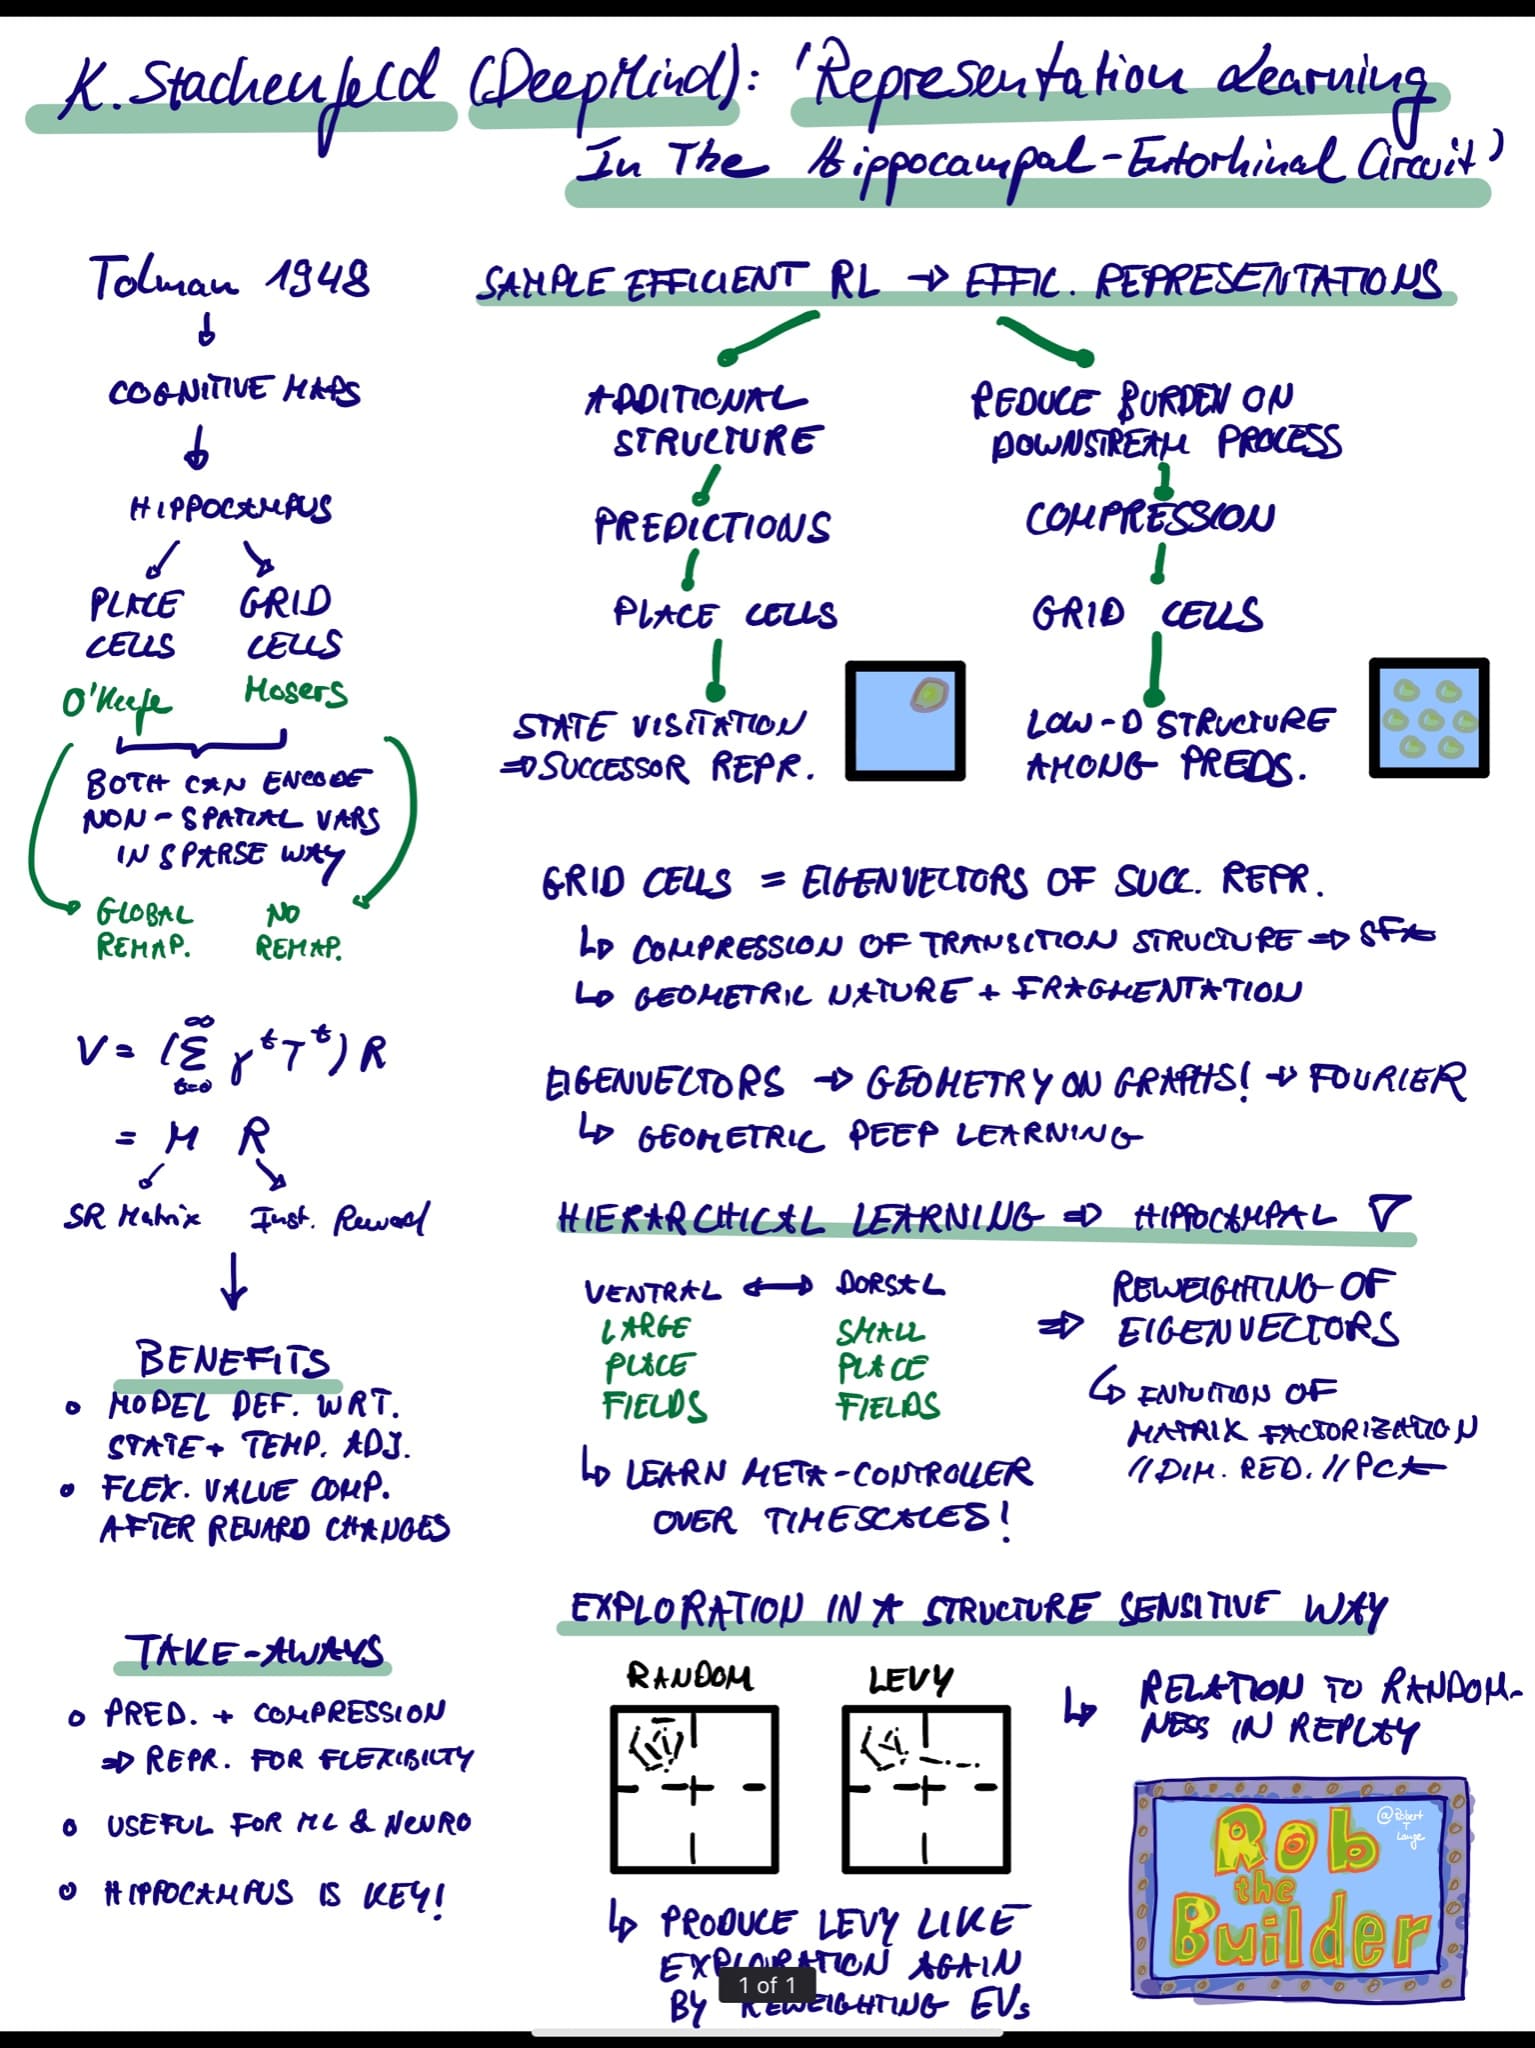 K. Stachenfeld (DeepMind): 'Representation Learning
In The Hippocampal-Entorhinal Circuit'
Tolman 1948
↓
COGNITIVE MAPS
↓
HIPPOCAMPUS
PLACE GRID
CELLS CELLS
O'Keefe Mosers
BOTH CAN ENCODE
NON-SPATIAL VARS
IN SPARSE WAY
GLOBAL NO
REMAP. REMAP.
V = (∑ γ^t T^t) R
∞
t=0
= M R
SR Matrix Inst. Reward
BENEFITS
• MODEL DEF. WRT.
STATE + TEMP. ADJ.
• FLEX. VALUE COMP.
AFTER REWARD CHANGES
TAKE-AWAYS
• PRED. + COMPRESSION
⇒ REPR. FOR FLEXIBILTY
• USEFUL FOR ML & NEURO
• HIPPOCAMPUS IS KEY!
SAMPLE EFFICIENT RL → EFFIC. REPRESENTATIONS
ADDITIONAL
STRUCTURE
PREDICTIONS
PLACE CELLS
STATE VISITATION
⇒ SUCCESSOR REPR.
REDUCE BURDEN ON
DOWNSTREAM PROCESS
COMPRESSION
GRID CELLS
LOW-D STRUCTURE
AMONG PREDS.
GRID CELLS = EIGENVECTORS OF SUCC. REPR.
↳ COMPRESSION OF TRANSITION STRUCTURE ⇒ SFA
↳ GEOMETRIC NATURE + FRAGMENTATION
EIGENVECTORS → GEOMETRY ON GRAPHS! → FOURIER
↳ GEOMETRIC DEEP LEARNING
HIERARCHICAL LEARNING ⇒ HIPPOCAMPAL ∇
VENTRAL ↔ DORSAL
LARGE SMALL
PLACE PLACE
FIELDS FIELDS
↳ LEARN META-CONTROLLER
OVER TIMESCALES!
⇒ REWEIGHTING OF
EIGENVECTORS
↳ INTUITION OF
MATRIX FACTORIZATION
// DIM. RED. // PCA
EXPLORATION IN A STRUCTURE SENSITIVE WAY
RANDOM LEVY
↳ RELATION TO RANDOM-
NESS IN REPLAY
↳ PRODUCE LEVY LIKE
EXPLORATION AGAIN
BY REWEIGHTING EVs
1 of 1
@Robert
T
Lange
Rob
the
Builder